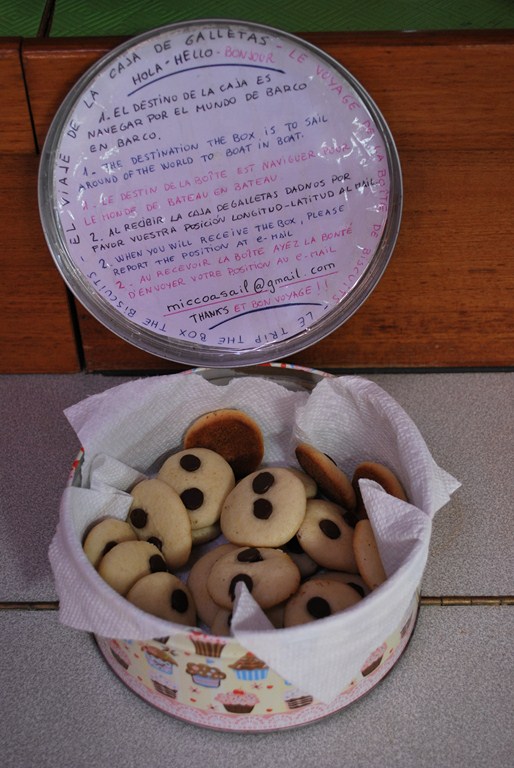 EL VIAJE DE LA CAJA DE GALLETAS - LE VOYAGE DE LA BOÎTE DE BISCUITS - LE TRIP THE BOX THE BISCUITS
HOLA - HELLO - BONJOUR
1. EL DESTINO DE LA CAJA ES
NAVEGAR POR EL MUNDO DE BARCO
EN BARCO.
1 - THE DESTINATION THE BOX IS TO SAIL
AROUND OF THE WORLD TO BOAT IN BOAT.
1 - LE DESTIN DE LA BOÎTE EST NAVIGUER POUR
LE MONDE DE BATEAU EN BATEAU
2. AL RECIBIR LA CAJA DE GALLETAS DADNOS POR
FAVOR VUESTRA POSICIÓN LONGITUD-LATITUD AL MAIL
2. WHEN YOU WILL RECEIVE THE BOX, PLEASE
REPORT THE POSITION AT E-MAIL
2. AU RECEVOIR LA BOÎTE AYEZ LA BONTÉ
D'ENVOYER VOTRE POSITION AU E-MAIL
miccoasail@gmail.com
THANKS ET BON VOYAGE!!